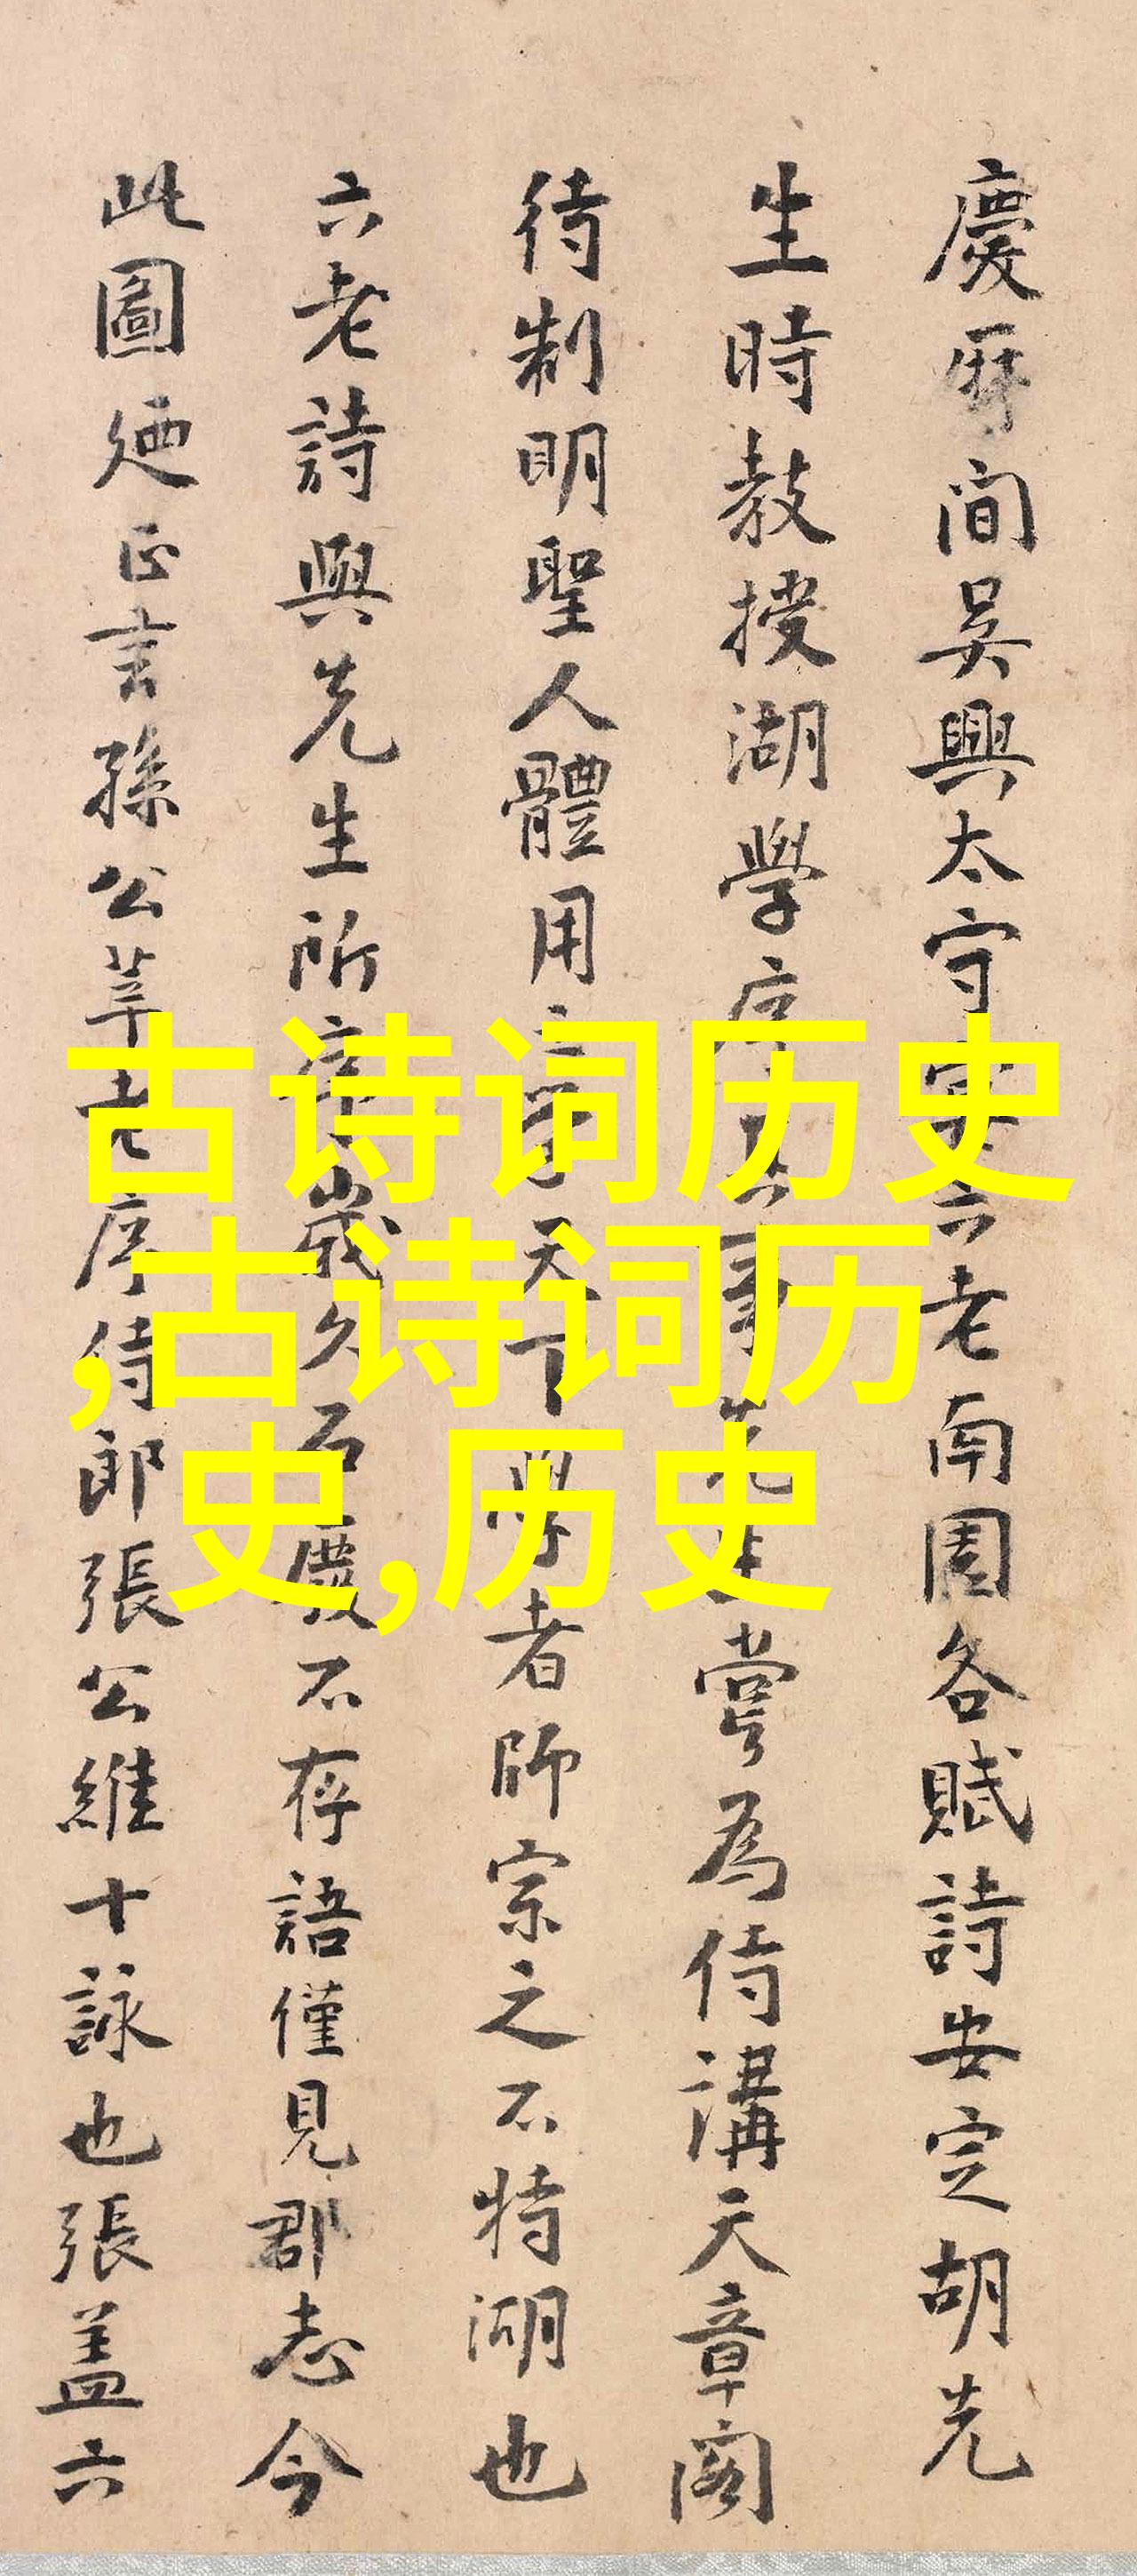 慶厤間吴興太守宴六老南園各賦詩安定胡先
生時教授湖學序其事先生嘗為侍講天章閣
待制明聖人體用之學天下學者師宗之不特湖也
六老詩與先生所序歲久石廢不存語僅見郡志今
此圖廼正言孫公莘老序侍郎張公維十詠也張蓋六
古诗词历史
,古诗词历
史,历史